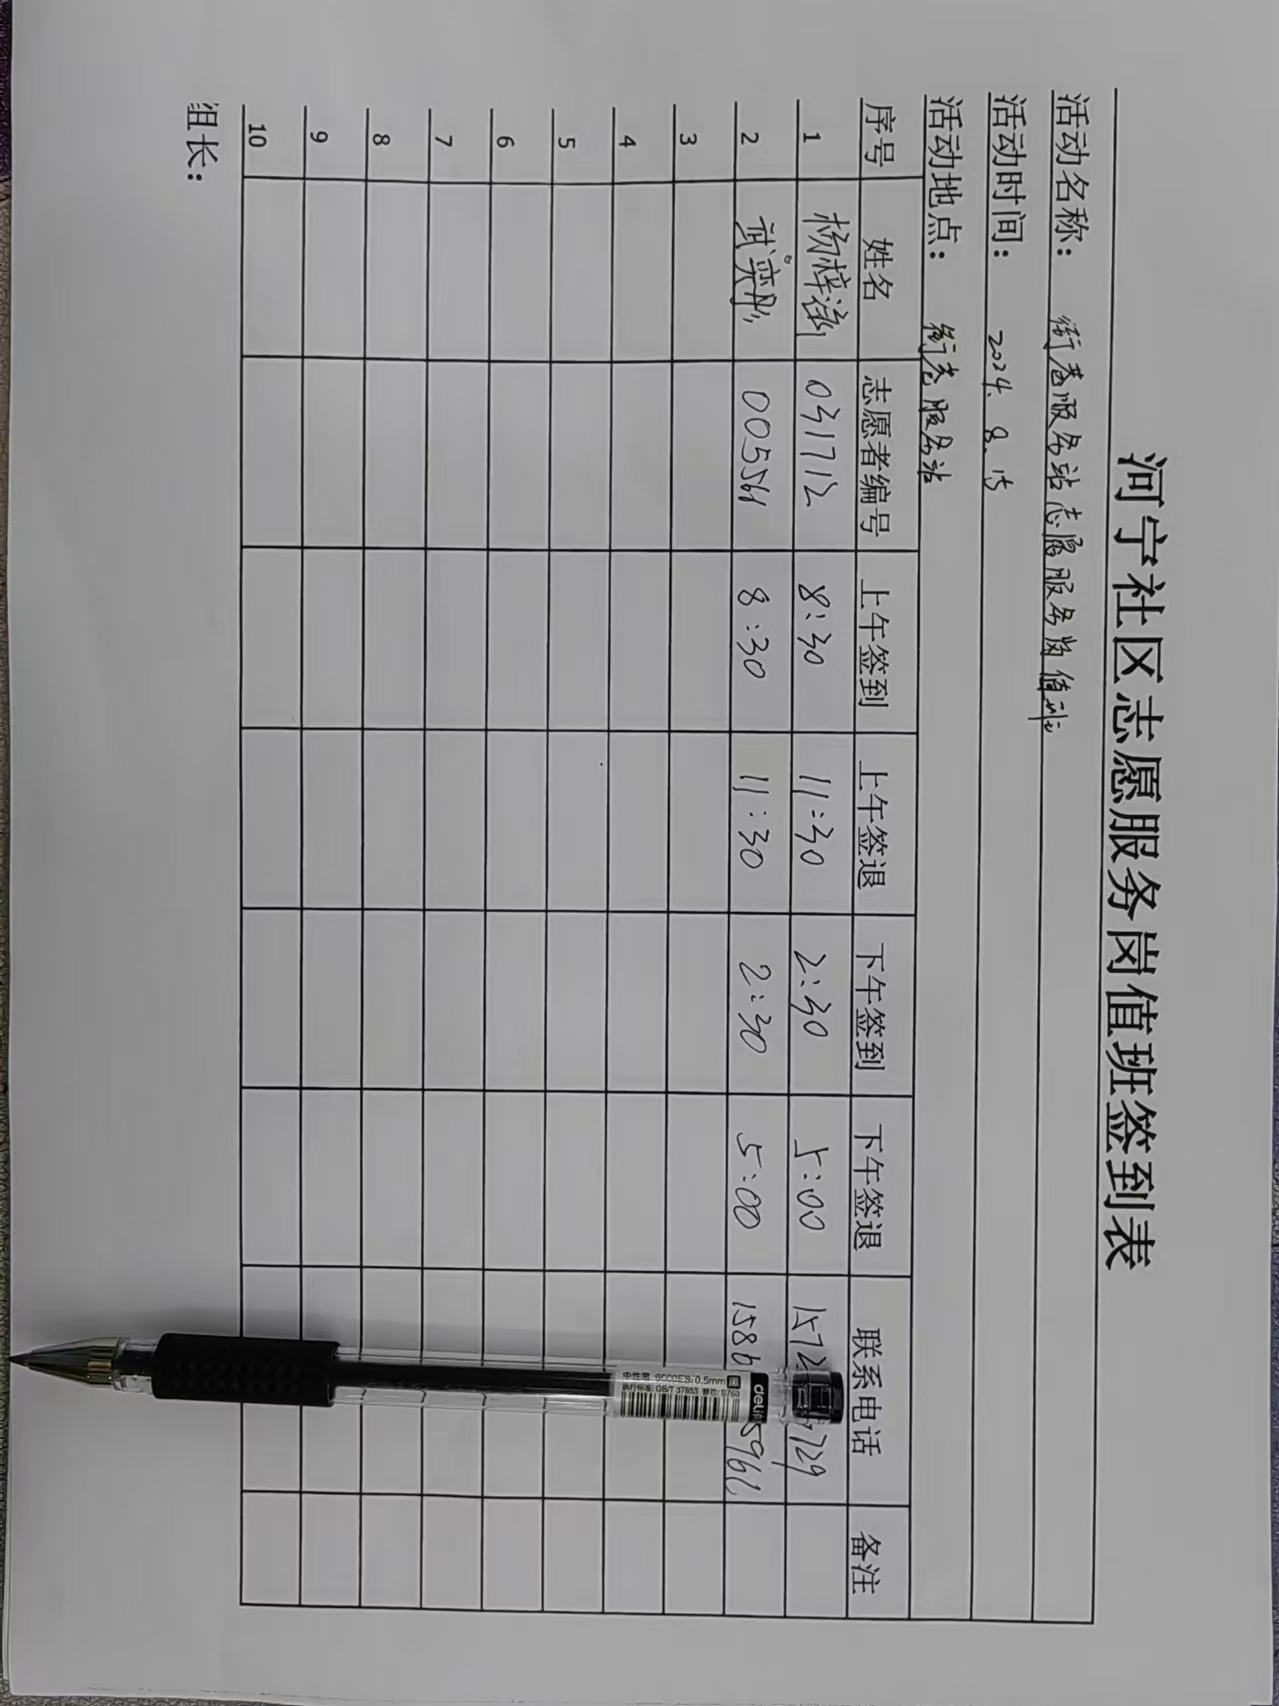 河宁社区志愿服务岗值班签到表
活动名称： 服务站志愿服务岗值班
活动时间： 2024.8.15
活动地点： 服务站
序号 姓名 志愿者编号 上午签到 上午签退 下午签到 下午签退 联系电话 备注
1 杨梓 031712 8:30 11:30 2:30 5:00 1572 729
2 武奕彤 005561 8:30 11:30 2:30 5:00 1586 5961
3
4
5
6
7
8
9
10
组长：
deli
中性笔 0.5mm 黑